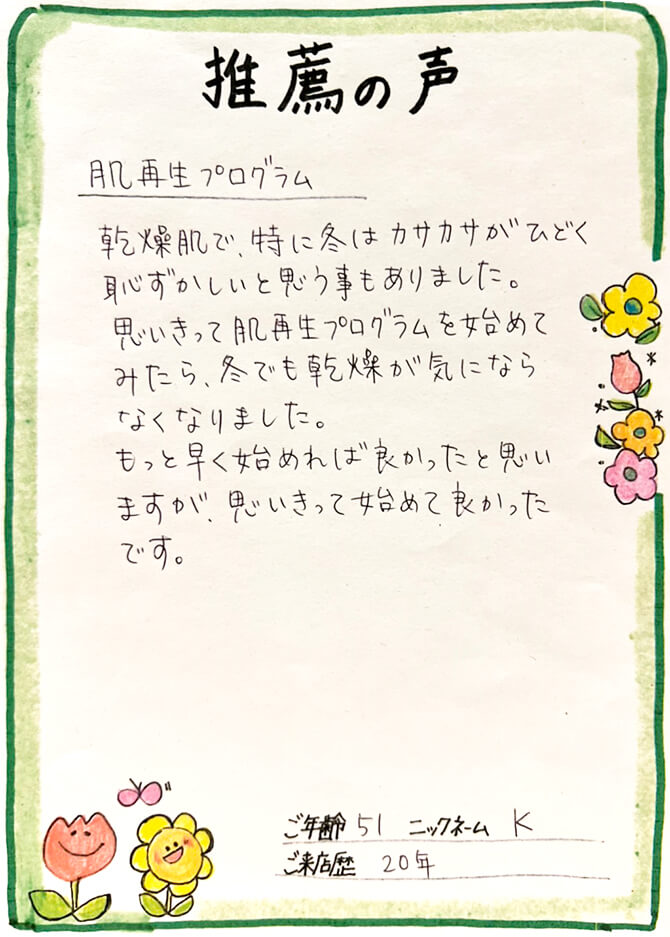 推薦の声
肌再生プログラム
乾燥肌で、特に冬はカサカサがひどく
恥ずかしいと思う事もありました。
思いきって肌再生プログラムを始めて
みたら、冬でも乾燥が気になら
なくなりました。
もっと早く始めれば良かったと思い
ますが、思いきって始めて良かった
です。
ご年齢 51 ニックネーム K
ご来店歴 20年